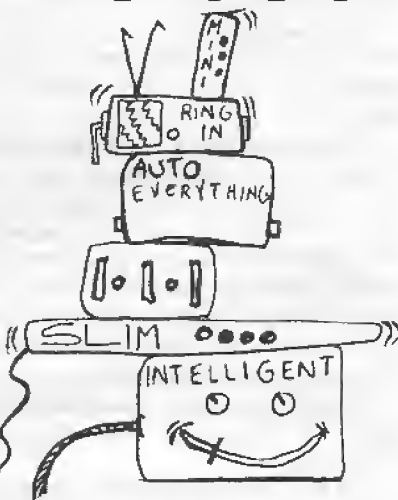 MINI
RING
IN
AUTO
EVERYTHING
SLIM
INTELLIGENT